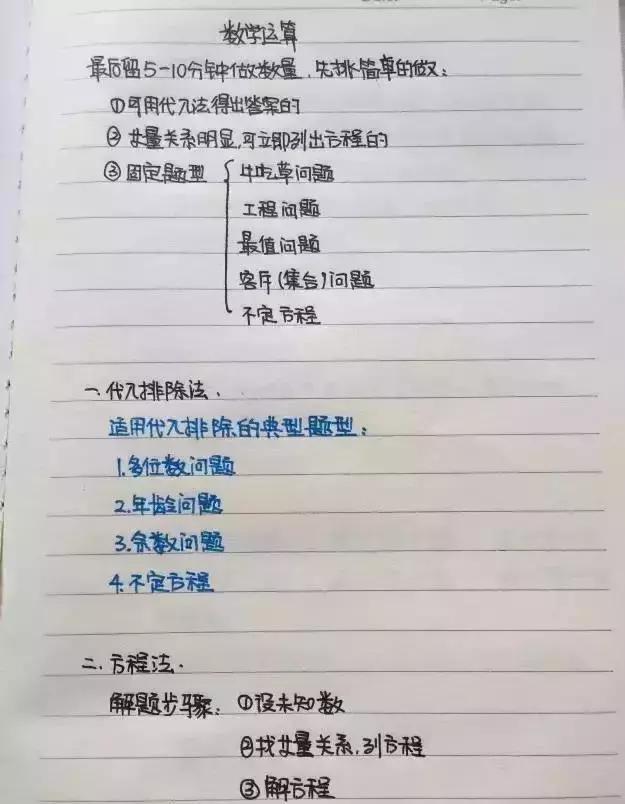 数学运算
最后留5-10分钟做数量,先挑简单的做:
①可用代入法得出答案的
②女量关系明显,可立即列出方程的
③固定题型 { 牛吃草问题
工程问题
最值问题
容斥(集合)问题
不定方程
一.代入排除法.
适用代入排除的典型题型:
1.多位数问题
2.年龄问题
3.余数问题
4.不定方程
二.方程法.
解题步骤:①设未知数
②找女量关系,列方程
③解方程